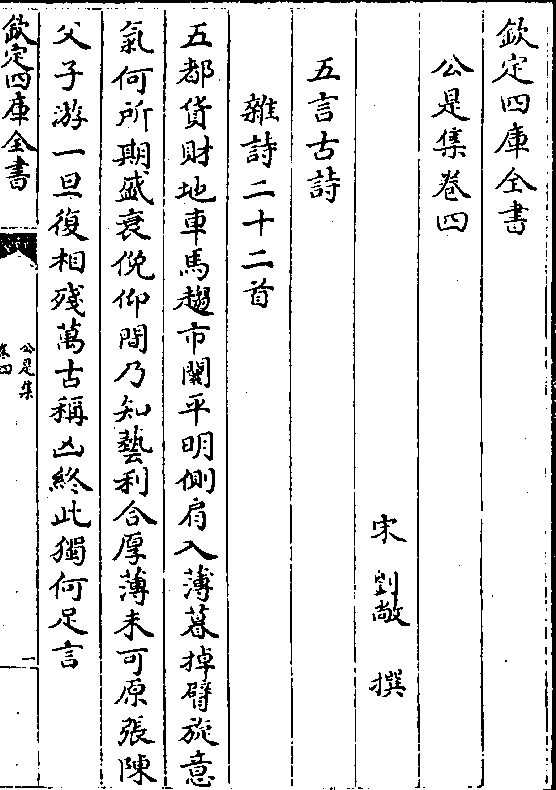 欽定四庫全書
公是集卷四
宋 劉敞 撰
五言古詩
雜詩二十二首
五都貨財地車馬趨市闤平明側肩入薄暮掉臂旋意
氣何所期盛衰俛仰間乃知藝利合厚薄未可原張陳
父子游一旦復相殘萬古稱凶終此獨何足言
欽定四庫全書
公是集
卷四
一